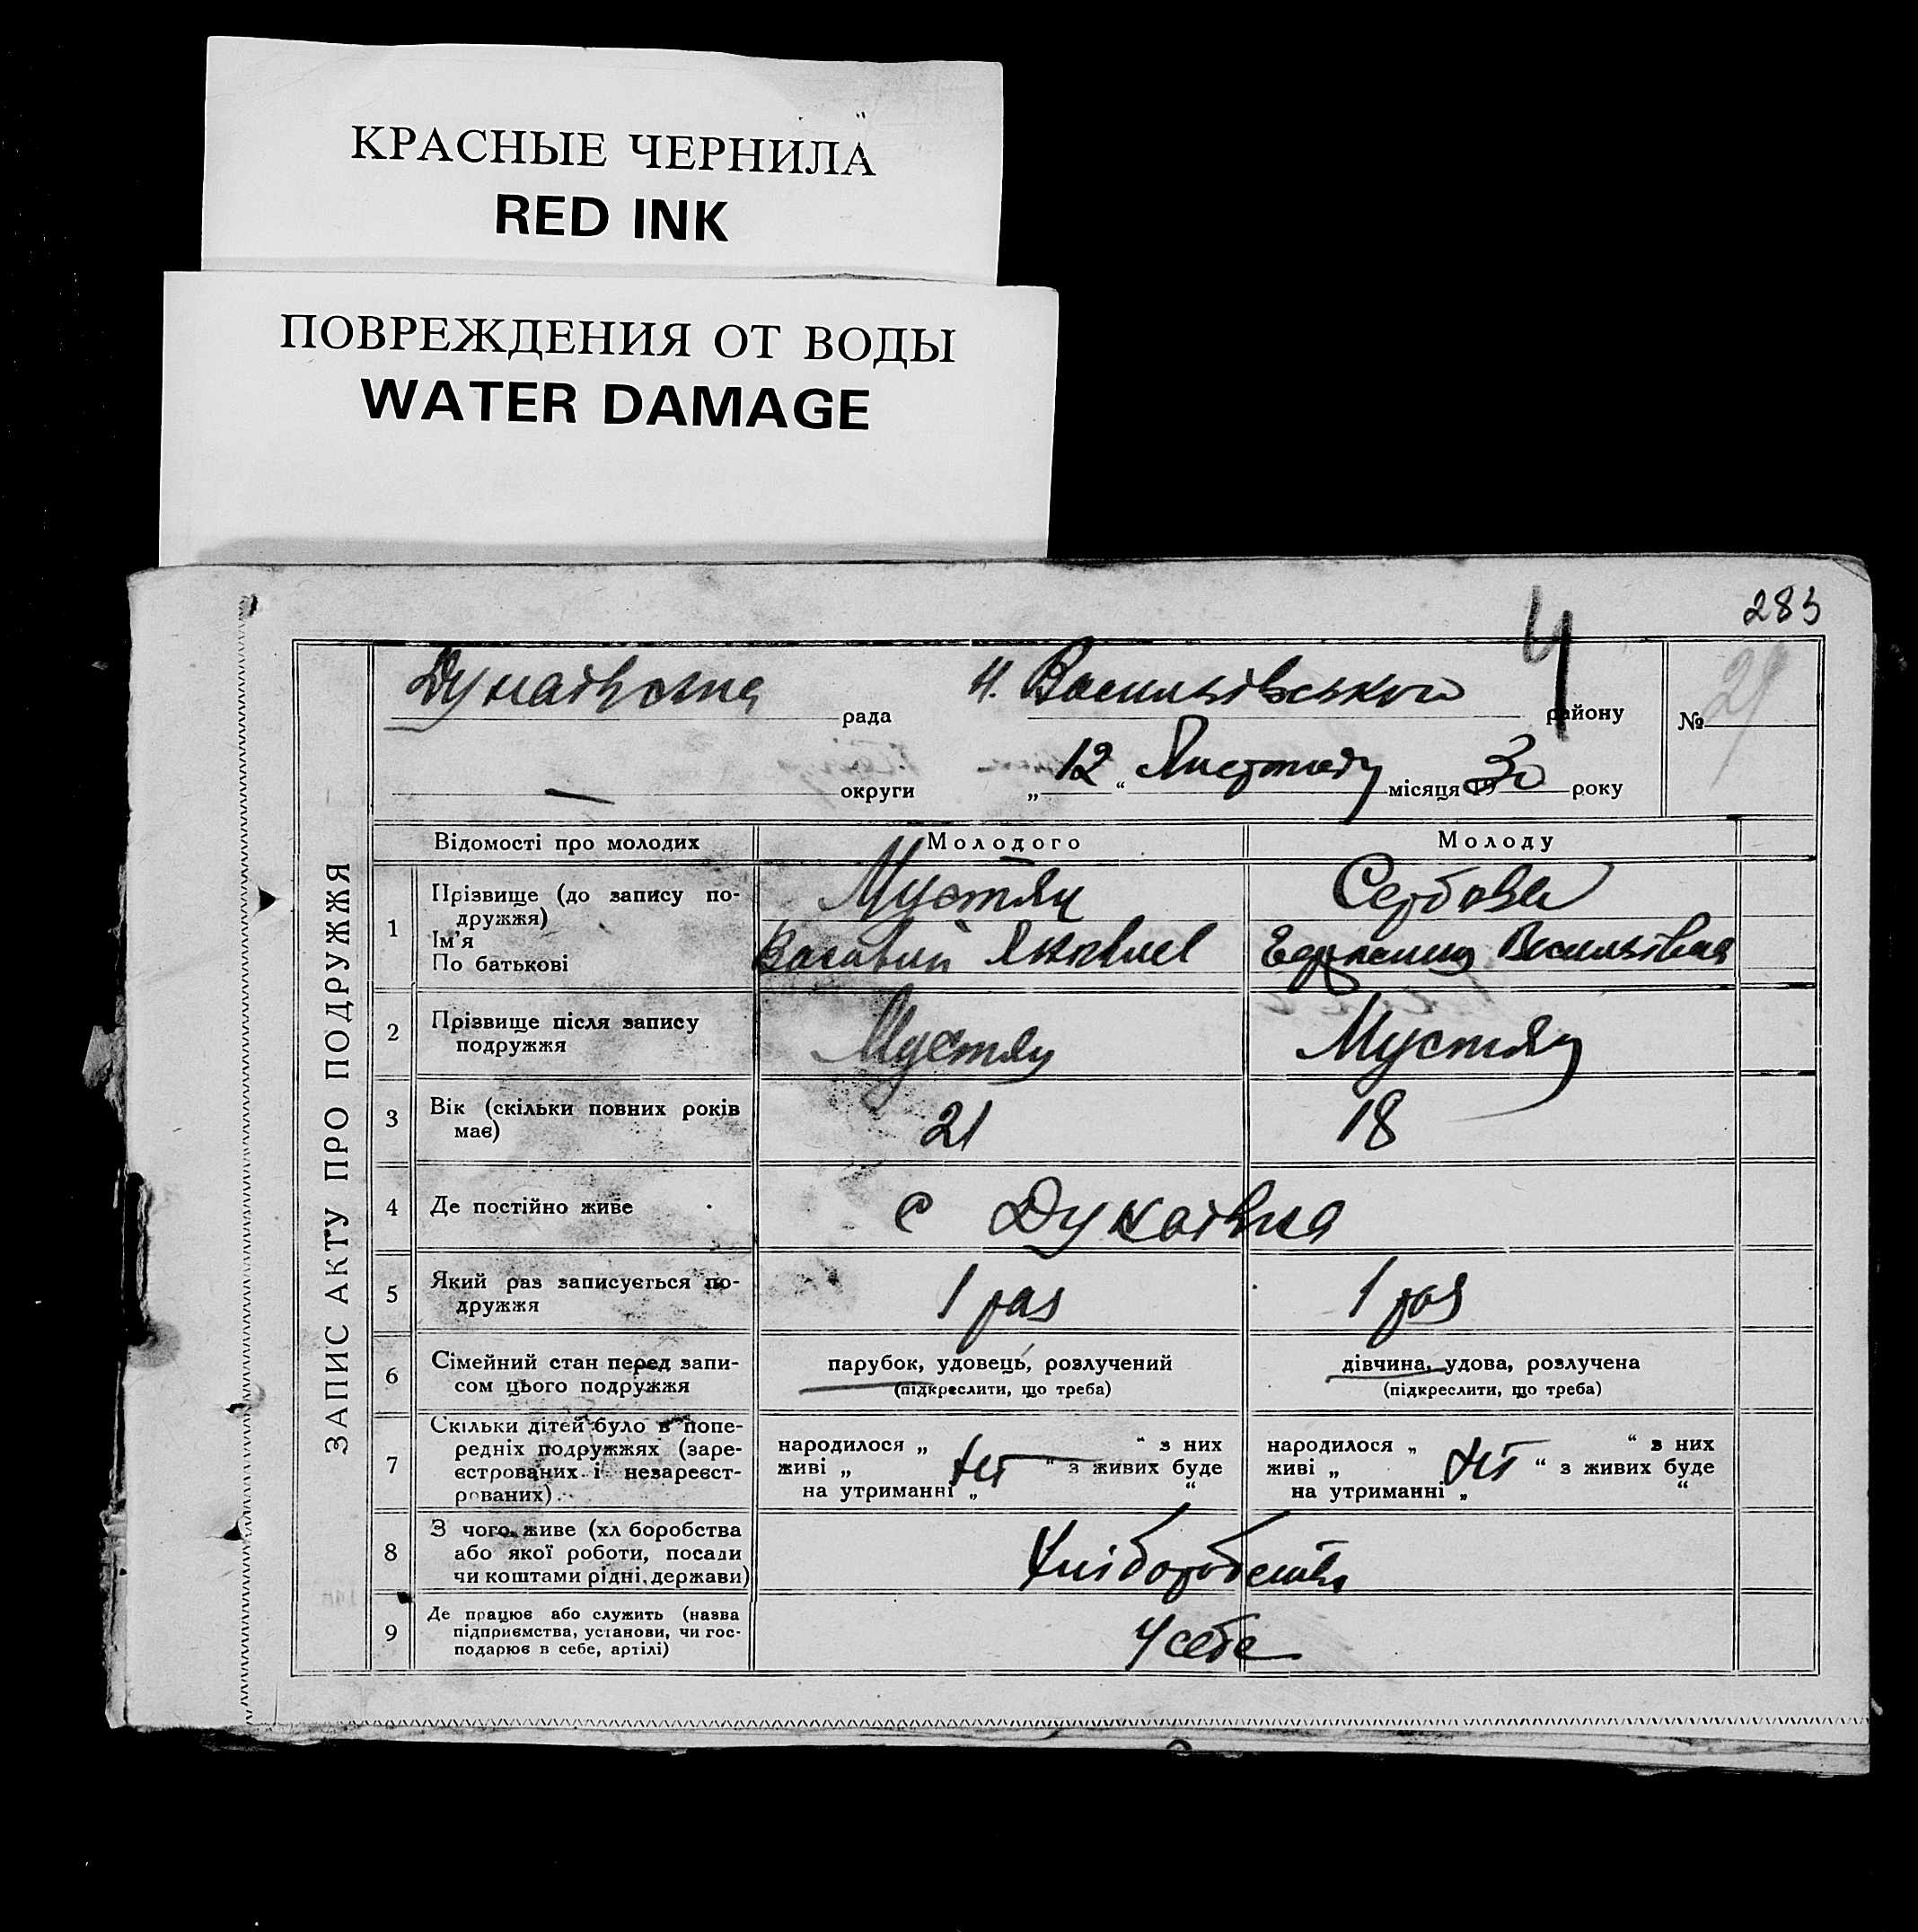 КРАСНЫЕ ЧЕРНИЛА
RED INK
ПОВРЕЖДЕНИЯ ОТ ВОДЫ
WATER DAMAGE
283
4
ЗАПИС АКТУ ПРО ПОДРУЖЖЯ
Дунаївська рада Н. Васильівського району № 29
— округи „12“ Листопаду місяця 30 року
Відомості про молодих Молодого Молоду
1 Прізвище (до запису по-
дружжя)
Мустяц Сербова
Ім'я
По батькові
Яковлев Васильівна
2 Прізвище після запису
подружжя
Мустяц Мустяц
3 Вік (скільки повних років
має)
21 18
4 Де постійно живе с Дунаівка
5 Який раз записується по-
дружжя
1 раз 1 раз
6 Сімейний стан перед запи-
сом цього подружжя
парубок, удовець, розлучений
(підкреслити, що треба)
дівчина, удова, розлучена
(підкреслити, що треба)
7 Скільки дітей було в попе-
редніх подружжях (заре-
єстрованих і незареєст-
рованих).
народилося „ “ з них
живі „ нет “ з живих буде
на утриманні „ “
народилося „ “ з них
живі „ нет “ з живих буде
на утриманні „ “
8 З чого живе (хл боробства
або якої роботи, посади
чи коштами рідні, держави)
Хліборобство
9 Де працює або служить (назва
підприємства, установи, чи гос-
подарює в себе, артілі)
У себе